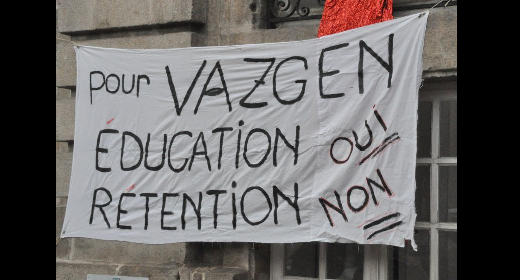 POUR VAZGEN
ÉDUCATION OUI
RETENTION NON